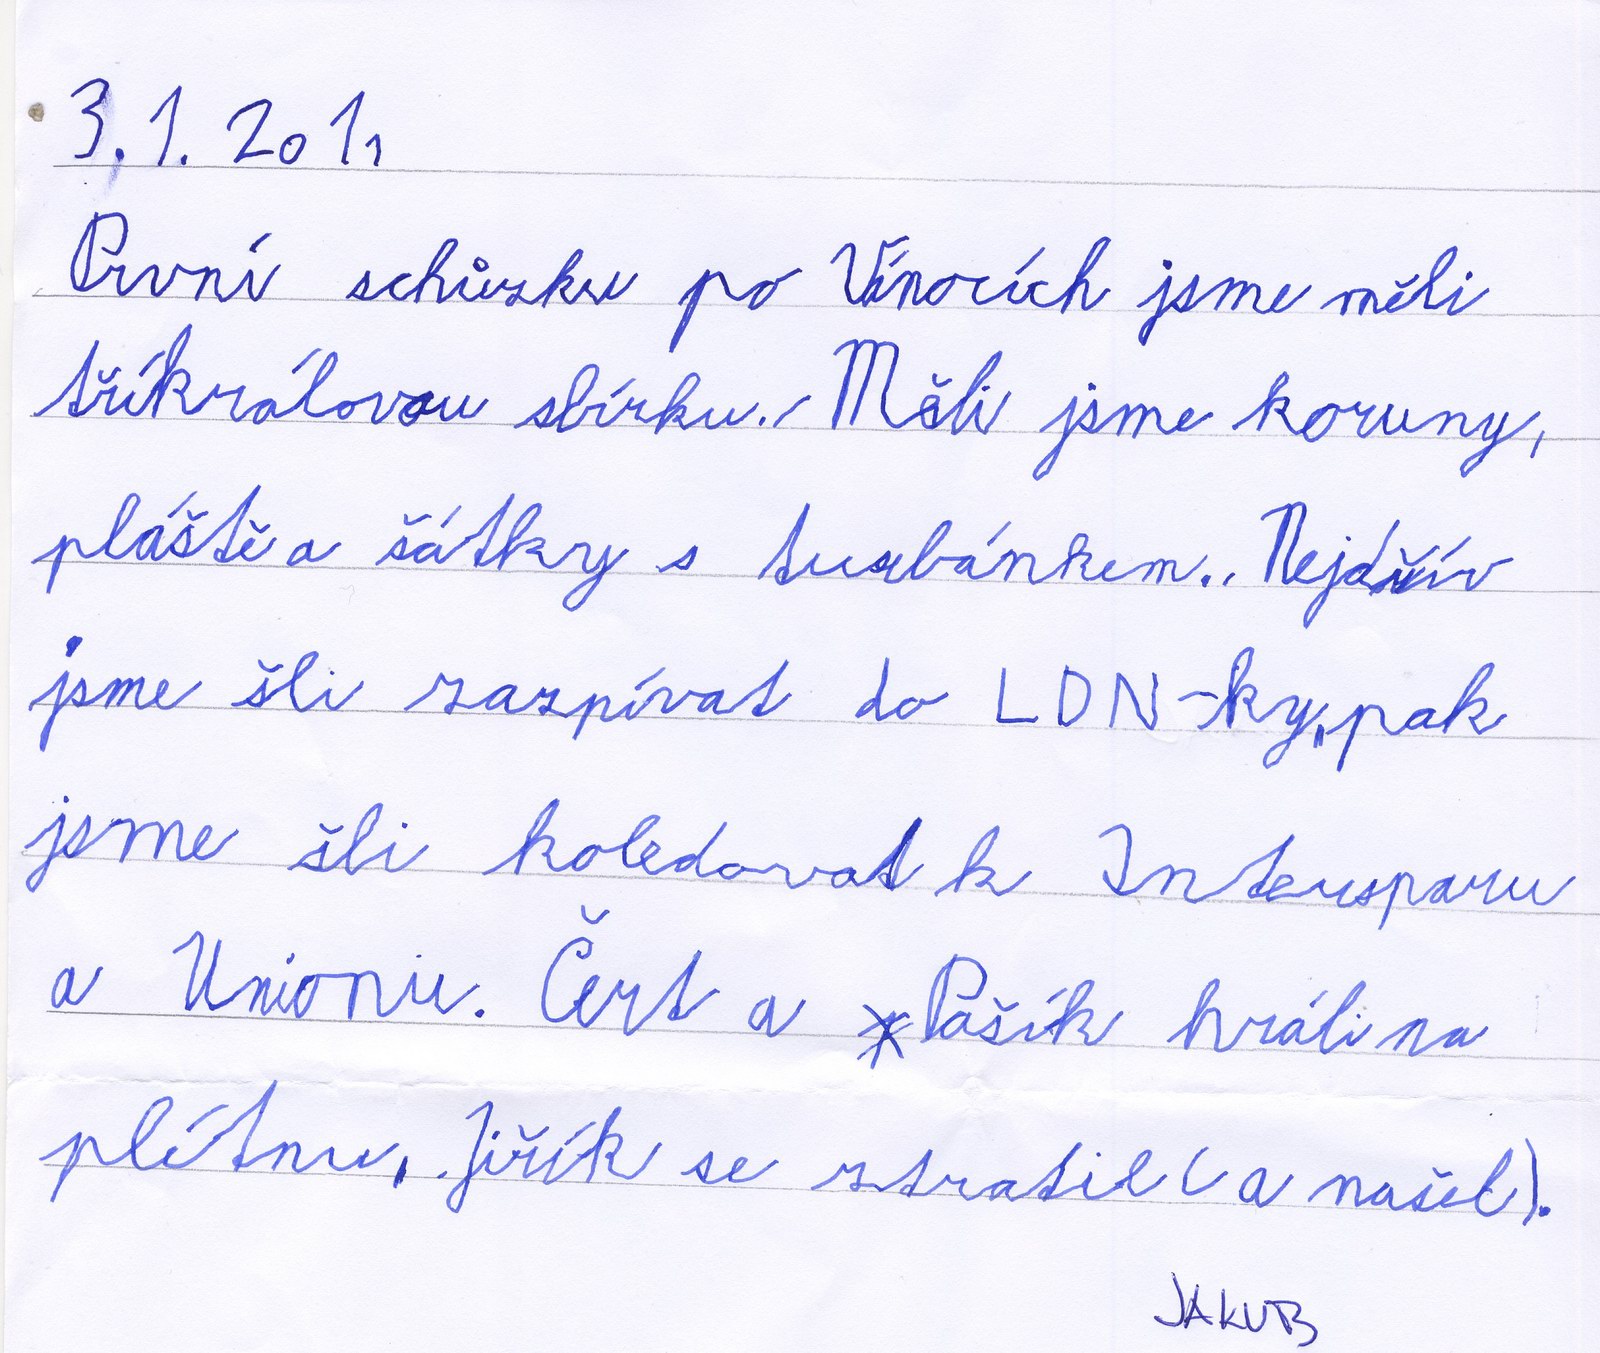 3.1.2011
První schůzku po Vánocích jsme měli
tříkrálovou sbírku. Měli jsme koruny,
pláště a šátky s turbánkem. Nejdřív
jsme šli zazpívat do LDN-ky, pak
jsme šli koledovat k Intersparu
a Unionu. Čert a Pašík hráli na
plétnu. Jiřík se ztratil (a našel).
JAKUB